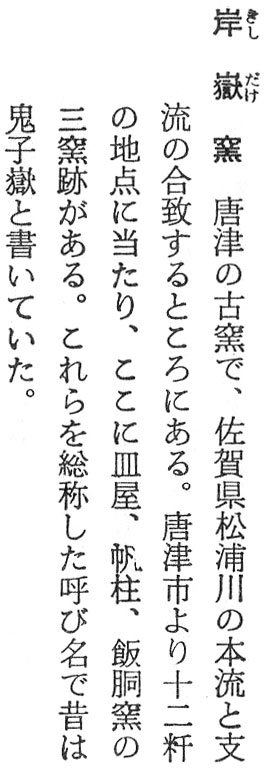 岸嶽窯　唐津の古窯で、佐賀県松浦川の本流と支
流の合致するところにある。唐津市より十二粁
の地点に当たり、ここに皿屋、帆柱、飯胴窯の
三窯跡がある。これらを総称した呼び名で昔は
鬼子嶽と書いていた。
きし
だけ